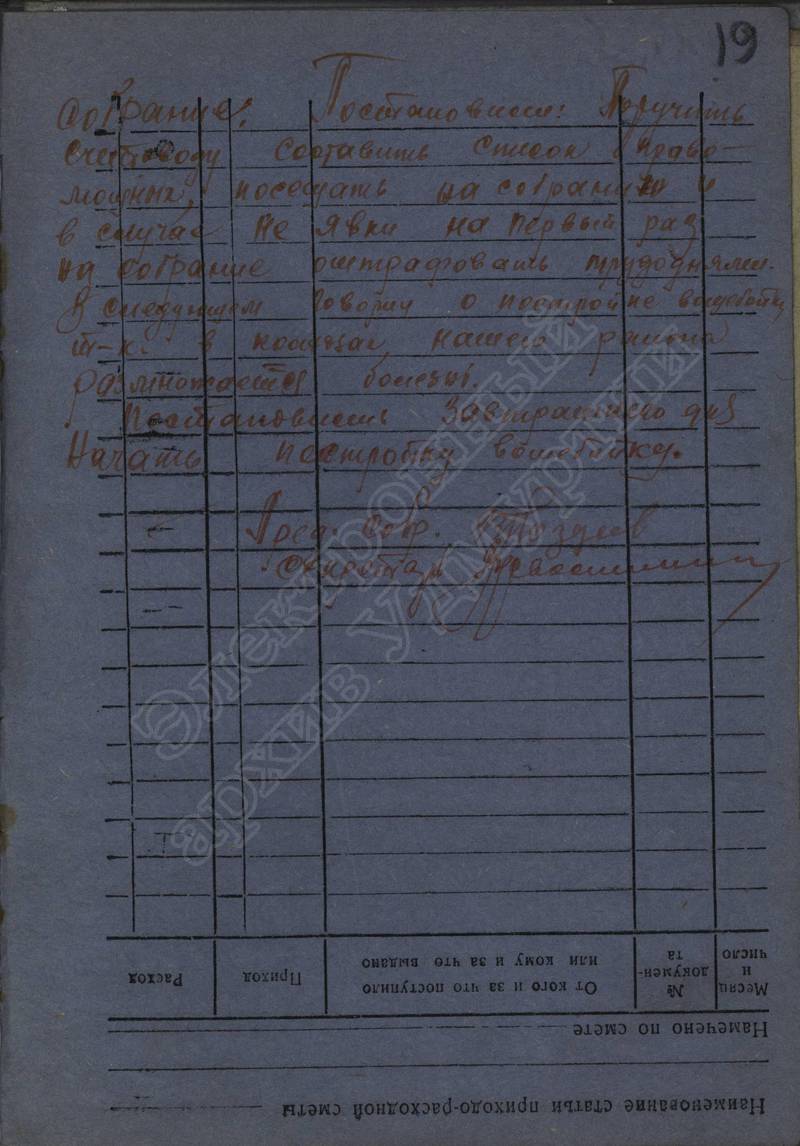 19
Собрание: Постановили: Поручить
счетоводу составить список право-
мощных, посещать на собрание и
в случае не явки на первый раз
на собрание оштрафовать трудоднями.
В следующем говорили о постройке вошебойки
т-к. в колхозах нашего района
размножается болезнь.
Постановисть завтрашнего дня
Начать постройку вошебойку.
Пред. Соб.
Секретарь
Электронный
архив Удмуртии
Расход
Приход
От кого и за что поступило
или кому и за что выдано
№
докумен-
та
Месяц
и
число
Намечено по смете
Наименование статьи приходо-расходной сметы